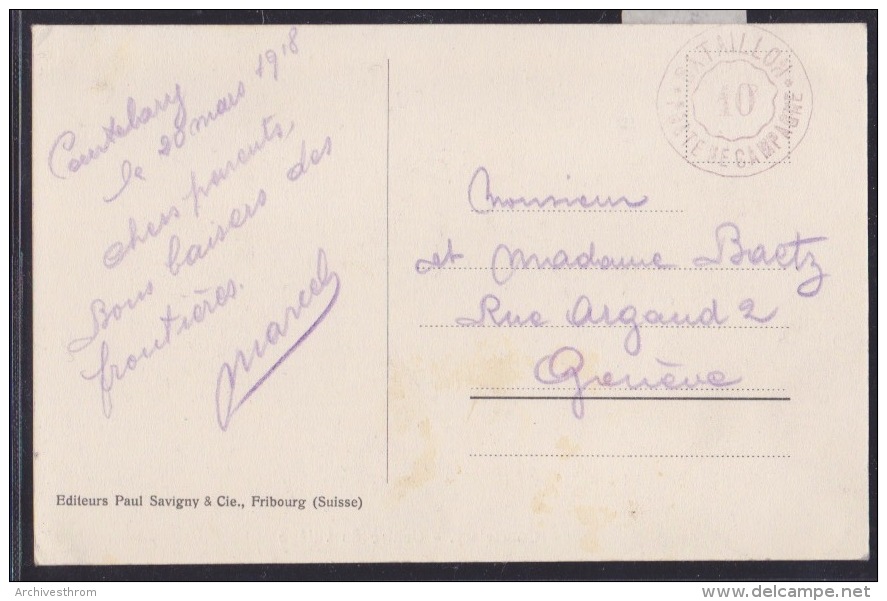 Courtelary
le 28 mars 1918
chers parents,
Bons baisers des
frontières.
Marcel
Editeurs Paul Savigny & Cie., Fribourg (Suisse)
BATAILLON
10
POSTE DE CAMPAGNE
Monsieur
et Madame Baetz
Rue Argand 2
Genève
Archivesthrom
delcampe.net